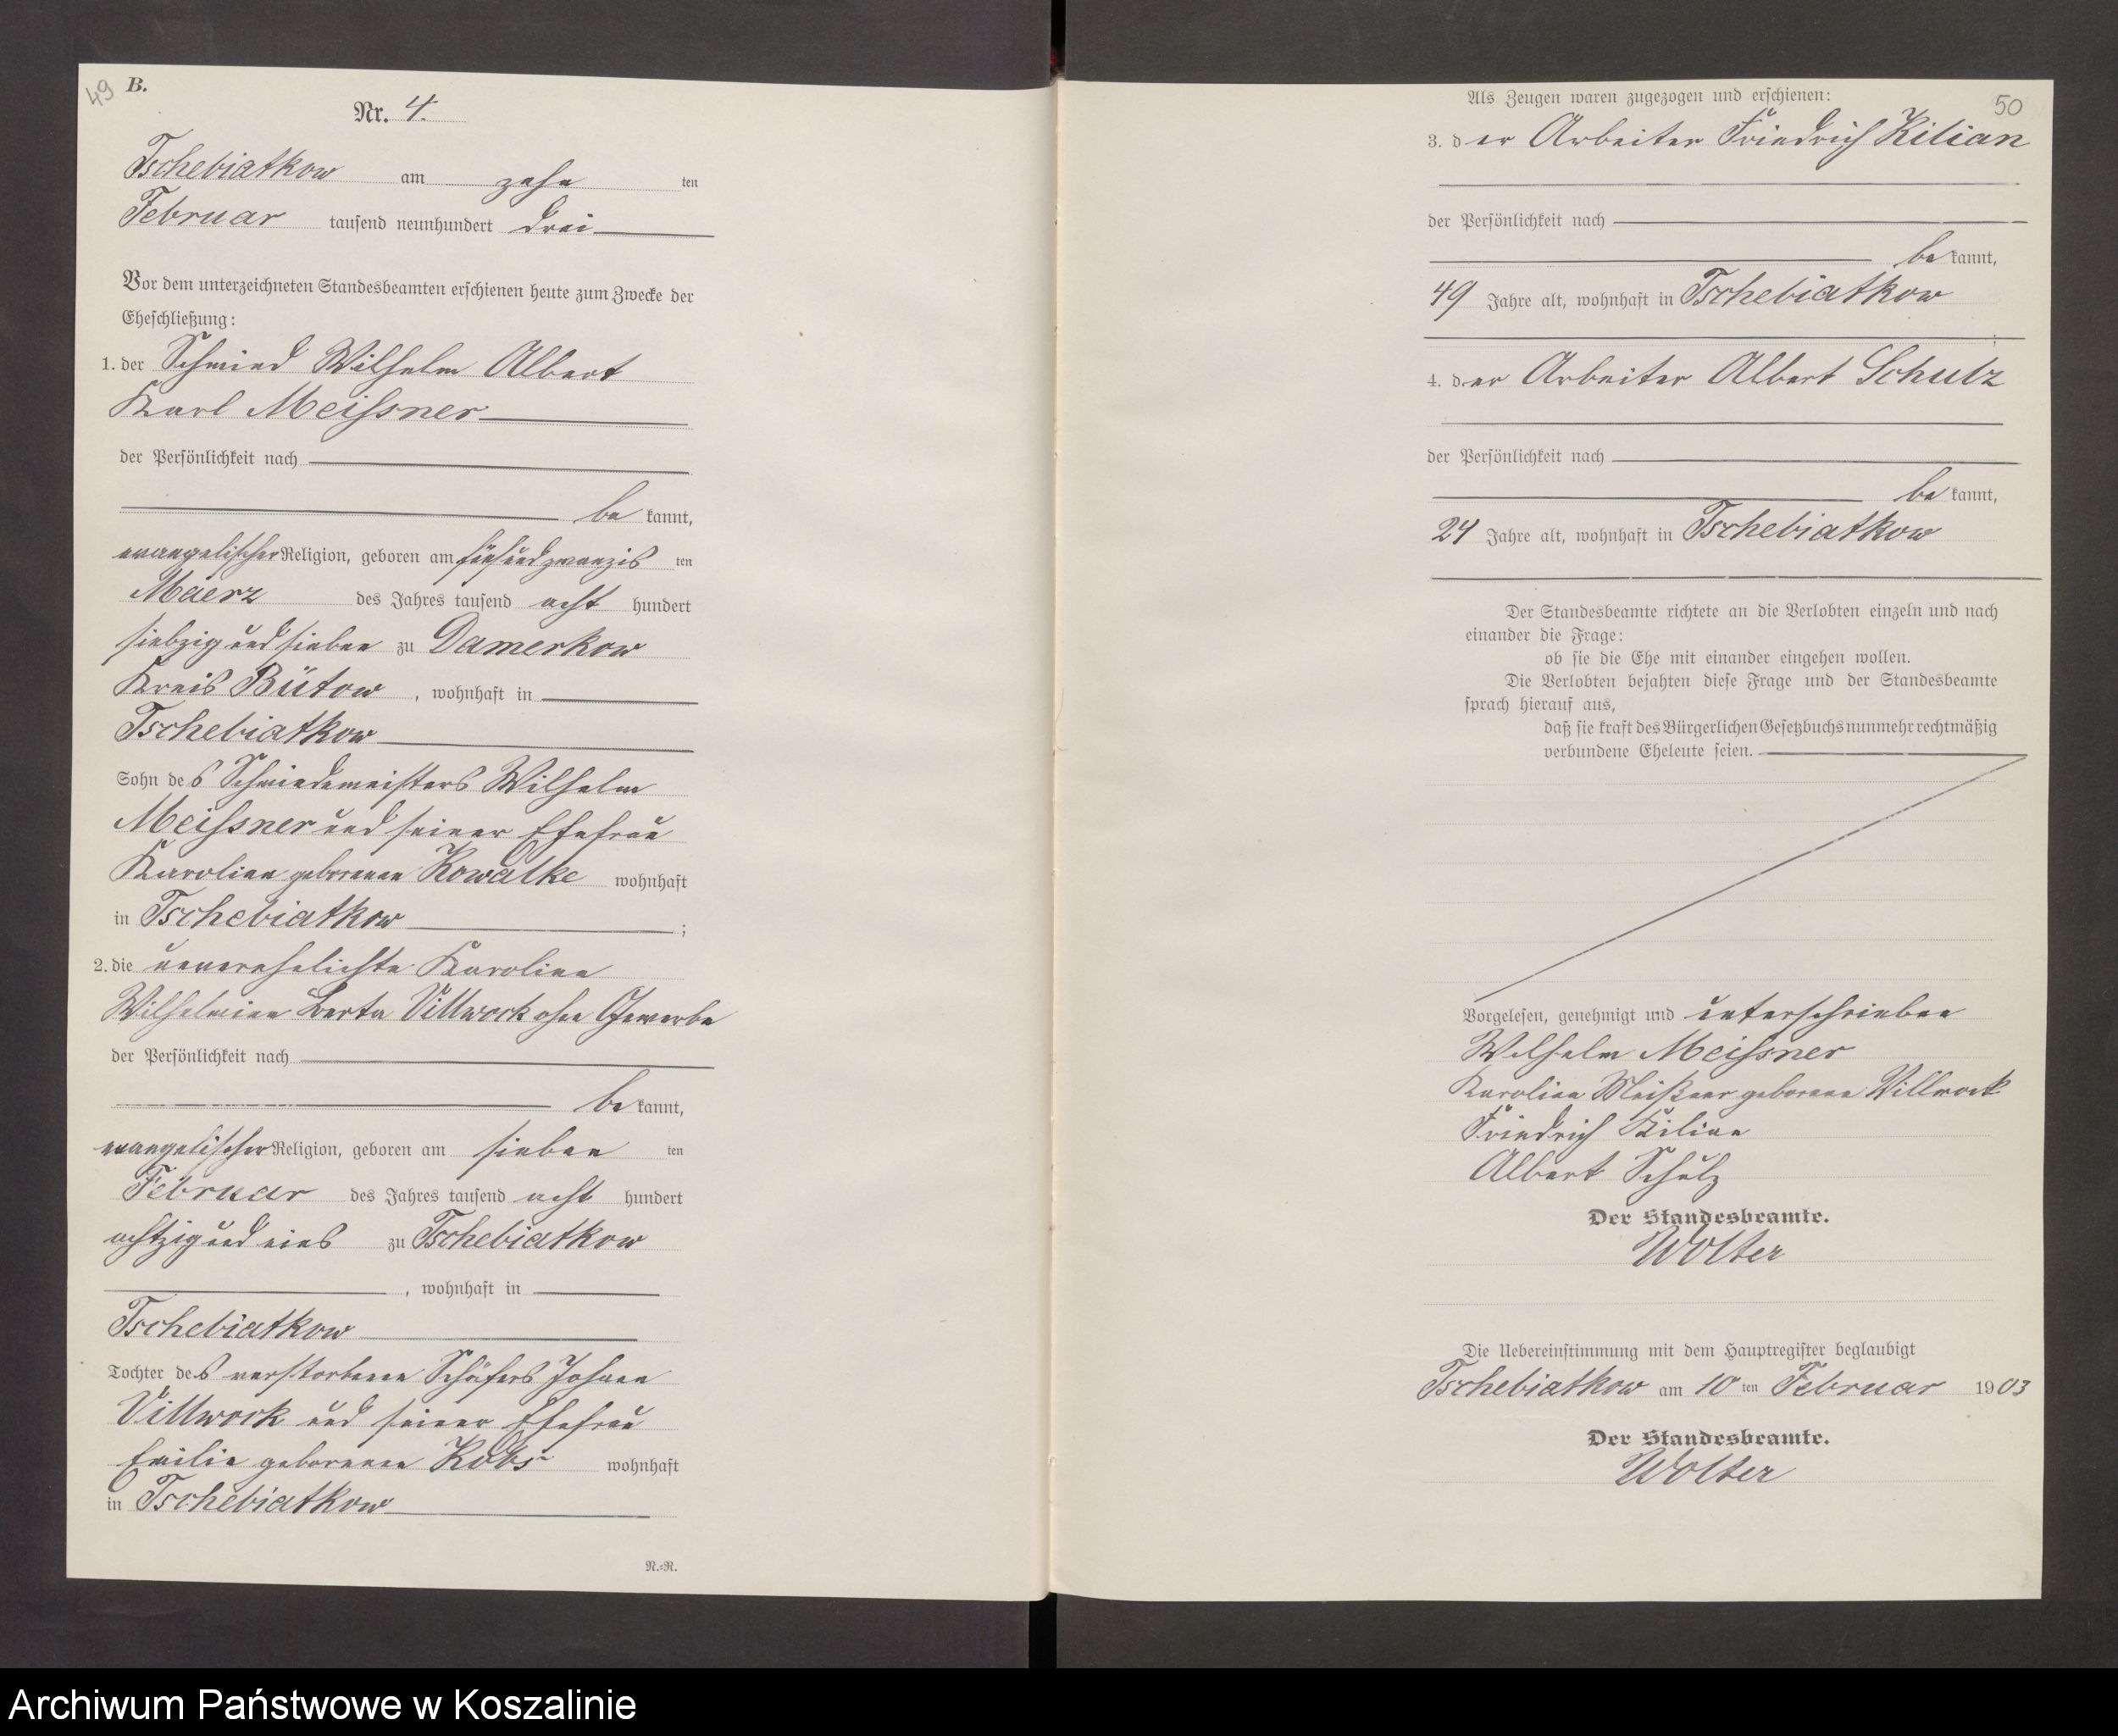 49 B.
Nr. 4.
Tschebiatkow am zehn ten
Februar tausend neunhundert drei
Vor dem unterzeichneten Standesbeamten erschienen heute zum Zwecke der
Eheschließung:
1. der Schmied Wilhelm Albert
Karl Meissner
der Persönlichkeit nach
be kannt,
evangelischer Religion, geboren am fünfundzwanzig ten
Maerz des Jahres tausend acht hundert
siebzig und sieben zu Damerkow
Kreis Bütow, wohnhaft in
Tschebiatkow
Sohn des Schmiedemeisters Wilhelm
Meissner und seiner Ehefrau
Karoline geborenen Kowalke wohnhaft
in Tschebiatkow ;
2. die unverehelichte Karoline
Wilhelmine Berta Villwock ohne Gewerbe
der Persönlichkeit nach
be kannt,
evangelischer Religion, geboren am sieben ten
Februar des Jahres tausend acht hundert
achtzig und eins zu Tschebiatkow
, wohnhaft in
Tschebiatkow
Tochter des verstorbenen Schäfers Johann
Villwock und seiner Ehefrau
Emilie geborenen Kobs wohnhaft
in Tschebiatkow
N.=R.
50
Als Zeugen waren zugezogen und erschienen:
3. der Arbeiter Friedrich Kilian
der Persönlichkeit nach
be kannt,
49 Jahre alt, wohnhaft in Tschebiatkow
;
4. der Arbeiter Albert Schulz
der Persönlichkeit nach
be kannt,
24 Jahre alt, wohnhaft in Tschebiatkow
Der Standesbeamte richtete an die Verlobten einzeln und nach
einander die Frage:
ob sie die Ehe mit einander eingehen wollen.
Die Verlobten bejahten diese Frage und der Standesbeamte
sprach hierauf aus,
daß sie kraft des Bürgerlichen Gesetzbuchs nunmehr rechtmäßig
verbundene Eheleute seien.
Vorgelesen, genehmigt und unterschrieben
Wilhelm Meissner
Karoline Meißner geborene Villwock
Friedrich Kilian
Albert Schulz
Der Standesbeamte.
Wolter
Die Uebereinstimmung mit dem Hauptregister beglaubigt
Tschebiatkow am 10 ten Februar 1903
Der Standesbeamte.
Wolter
Archiwum Państwowe w Koszalinie